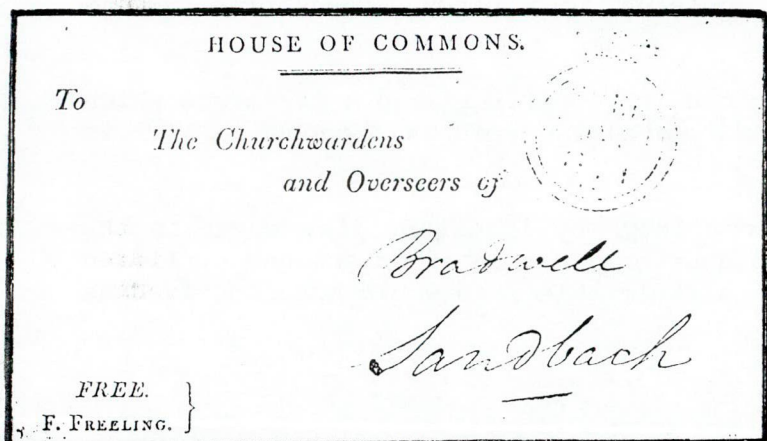 HOUSE OF COMMONS.
To
The Churchwardens
and Overseers of
Bradwell
Sandbach
FREE.
F. FREELING.